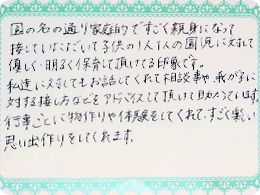 園の名の通り家庭的ですごく親身になって
接していただいて子供の1人1人の個況に対して
優しく明るく保育して頂けてる印象です。
私達に対してもお話してくれて相談事や、我が子に
対する接し方などをアドバイスして頂けて助かっています。
行事ごとに物作りや体験をしてくれて、すごく楽しい
思い出作りをしてくれます。